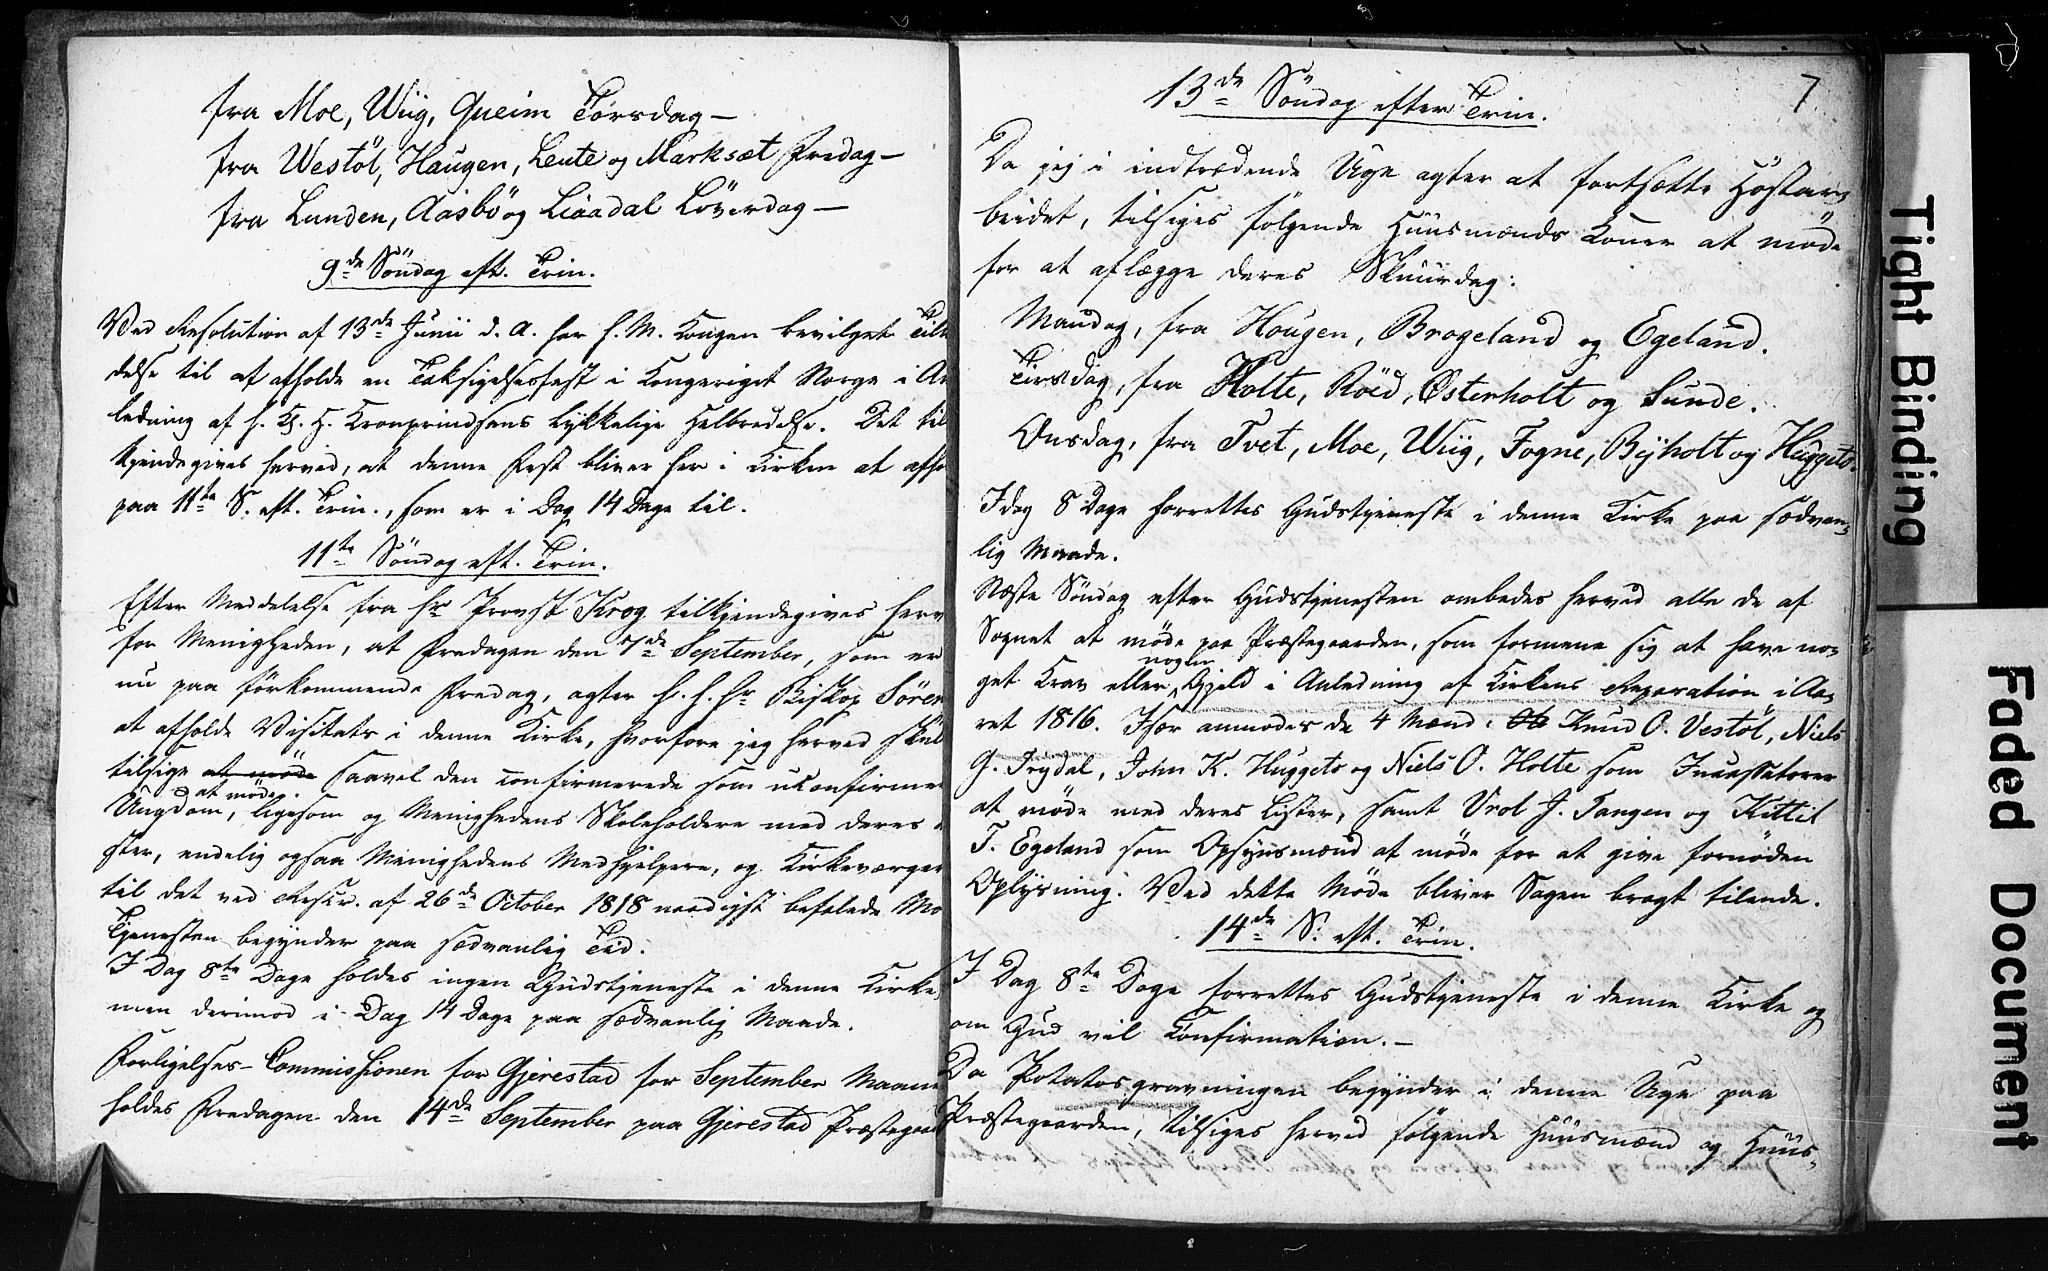 fra Moe, Wiig, Qveim Torsdag –
fra Westöl, Haugen, Leute og Marksæt Fredag –
fra Lunden, Aasbö og Liaadal Löverdag –
9de Söndag eft. Trin.
Ved Resolution af 13de Junii d. A. har H. M. Kongen bevilget Till
delse til at afholde en Taksigelsesfest i Kongeriget Norge i An
ledning af H. K. H. Kronprindsens lykkelige Helbredelse. Det til
kjendegives herved, at denne Fest bliver her i Kirken at afho
paa 11te S. eft. Trin., som er i Dag 14 Dage til.
11te Söndag eft. Trin.
Efter Meddelelse fra Hr Provst Krog tilkjendegives herv
for Menigheden, at Fredagen den 7de September, som er
nu paa förkommende Fredag, agter H. H. Hr Biskop Sören
at afholde Visitats i denne Kirke, hvorfore jeg herved skul
tilsige at möde saavel den confirmerede som uconfirme
at möde
Ungdom, ligesom og Menighedens Skoleholdere med deres
ster, endelig ogsaa Menighedens Medhjelpere, og Kirkeværger
til det ved Rescr. af 26de October 1818 naadigst befalede Mö
Tjenesten begynder paa sædvanlig Tid.
I Dag 8te Dage holdes ingen Gudstjeneste i denne Kirke,
men derimod i Dag 14 Dage paa sædvanlig Maade.
Forligelses-Commissionen for Gjerestad for September Maane
holdes Fredagen den 14de September paa Gjerestad Præstegaa
7
13de Söndag efter Trin.
Da jeg i indtrædende Uge agter at fortsætte Höstar-
beidet, tilsiges fölgende Huusmænds Koner at möde
for at aflægge deres Skuurdag:
Mandag, fra Hougen, Brogeland og Egeland.
Tirsdag, fra Holte, Röed, Østerholt og Sunde.
Onsdag, fra Tvet, Moe, Wiig, Fogne, Byholt og Huggeto.
I dag 8 Dage forrettes Gudstjeneste i denne Kirke paa sædvan-
lig Maade.
Næste Söndag efter Gudstjenesten ombedes herved alle de af
Sognet at möde paa Præstegaarden, som formene sig at have no-
nogen
get Krav eller Gjeld i Anledning af Kirkens Reparation i Aa-
ret 1816. Især anmodes de 4 Mænd: Ole Knud O. Vestöl, Niels
G. Trydal, John K. Huggeto og Niels O. Holte som Incassatorer
at möde med deres Lister, samt Vrol J. Tangen og Kittil
T. Egeland som Opsynsmænd at möde for at give fornöden
Oplysning. Ved dette Möde bliver Sagen bragt tilende.
14de S. eft. Trin.
I Dag 8te Dage forrettes Gudstjeneste i denne Kirke og
om Gud vil Confirmation. –
Da Potatosgravningen begynder i denne Uge paa
Præstegaarden, tilsiges herved fölgende Huusmænd og Huus-
Tight Binding
Faded Document